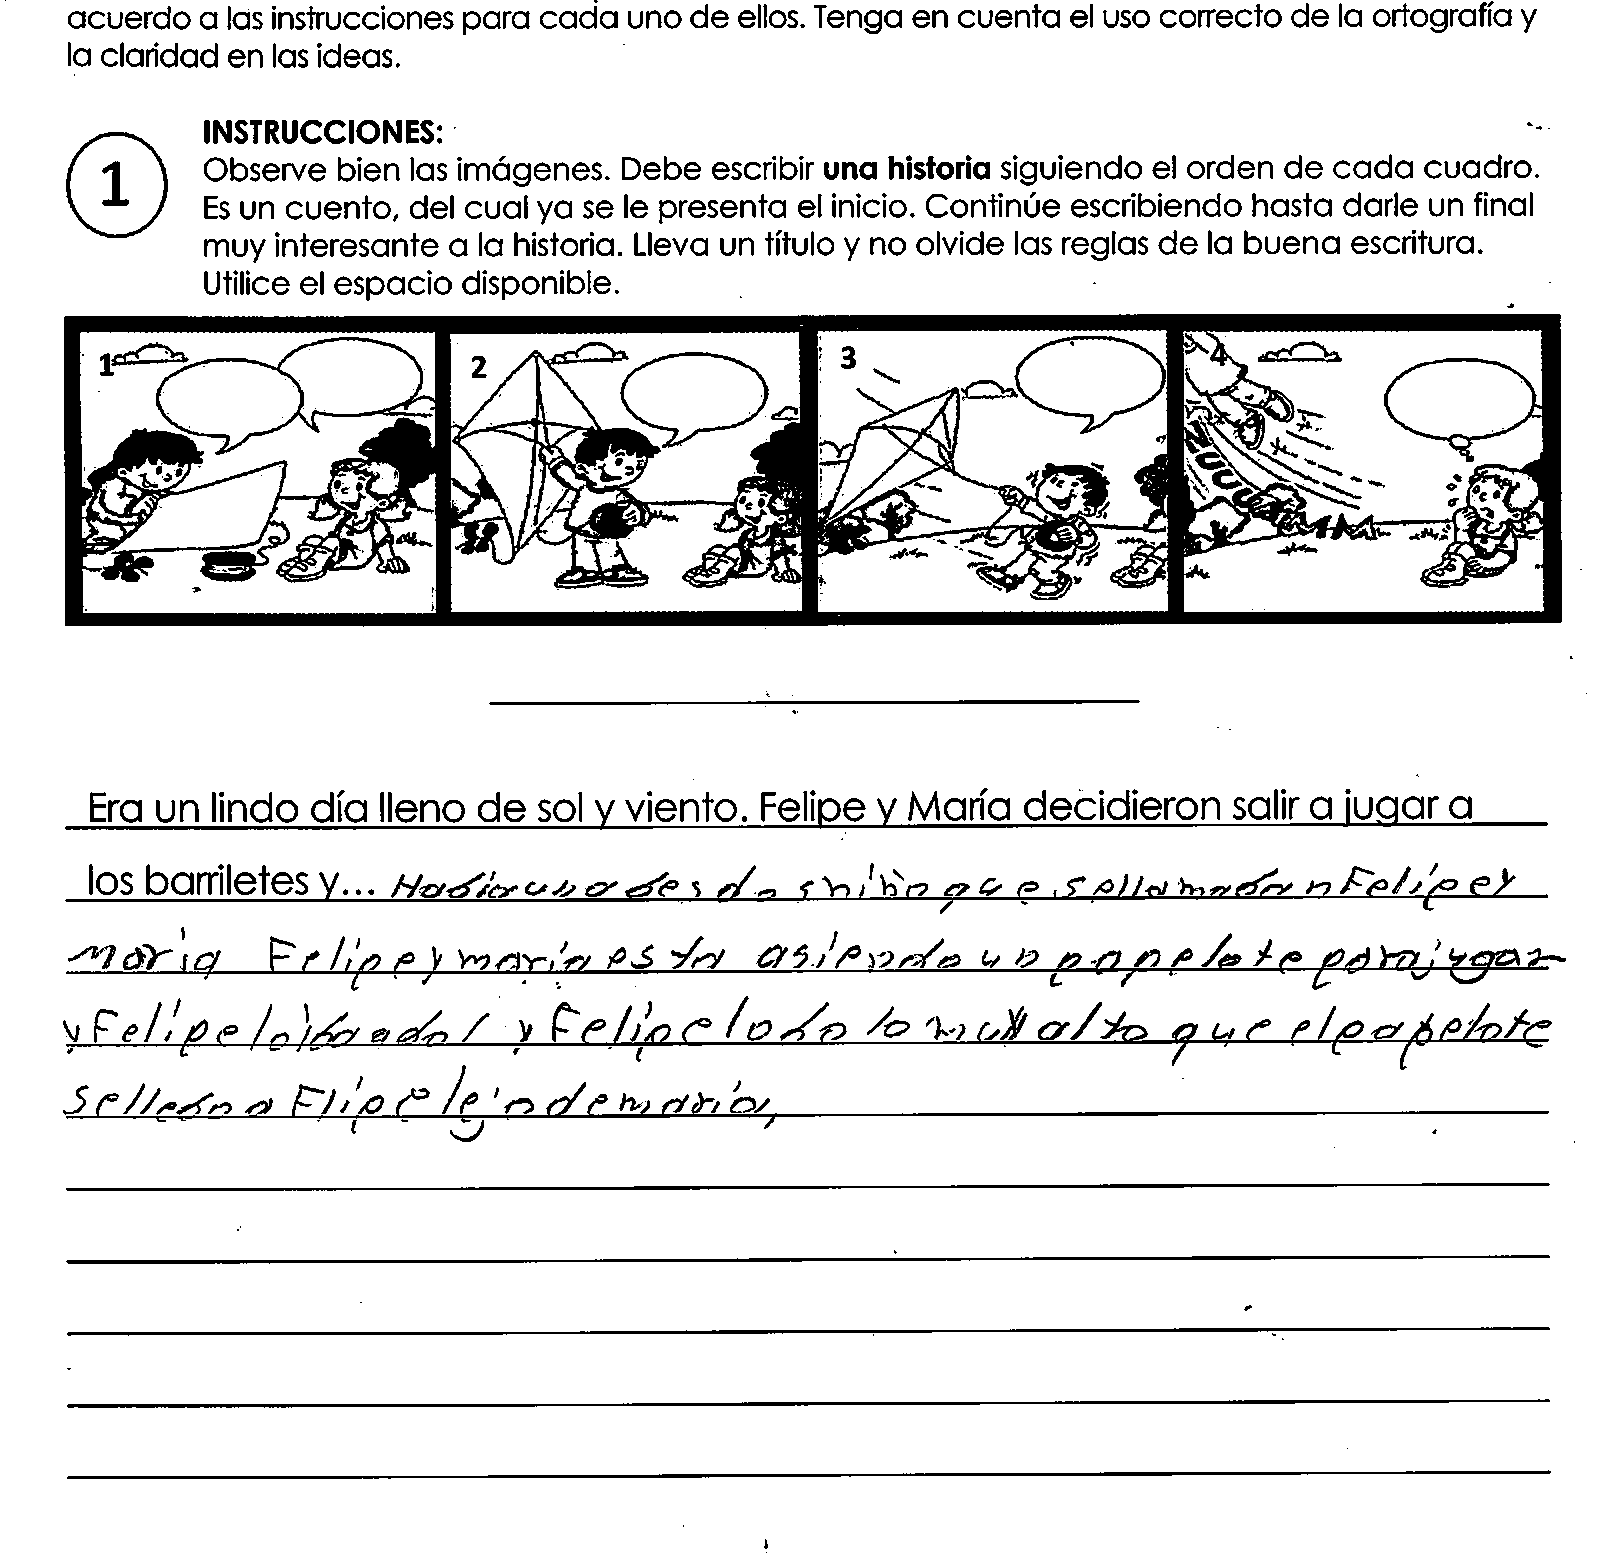 acuerdo a las instrucciones para cada uno de ellos. Tenga en cuenta el uso correcto de la ortografía y
la claridad en las ideas.
1
INSTRUCCIONES:
Observe bien las imágenes. Debe escribir una historia siguiendo el orden de cada cuadro.
Es un cuento, del cual ya se le presenta el inicio. Continúe escribiendo hasta darle un final
muy interesante a la historia. Lleva un título y no olvide las reglas de la buena escritura.
Utilice el espacio disponible.
1 2 3 4
Era un lindo día lleno de sol y viento. Felipe y María decidieron salir a jugar a
los barriletes y... Habia una bes do s niño que se llamaban Felipe y
maria Felipe y maria esta asiendo un papelote para jugar
y Felipe lo iba a y Felipe lo bolo muy alto que el papelote
se lleba a Flipe lejo de maria,